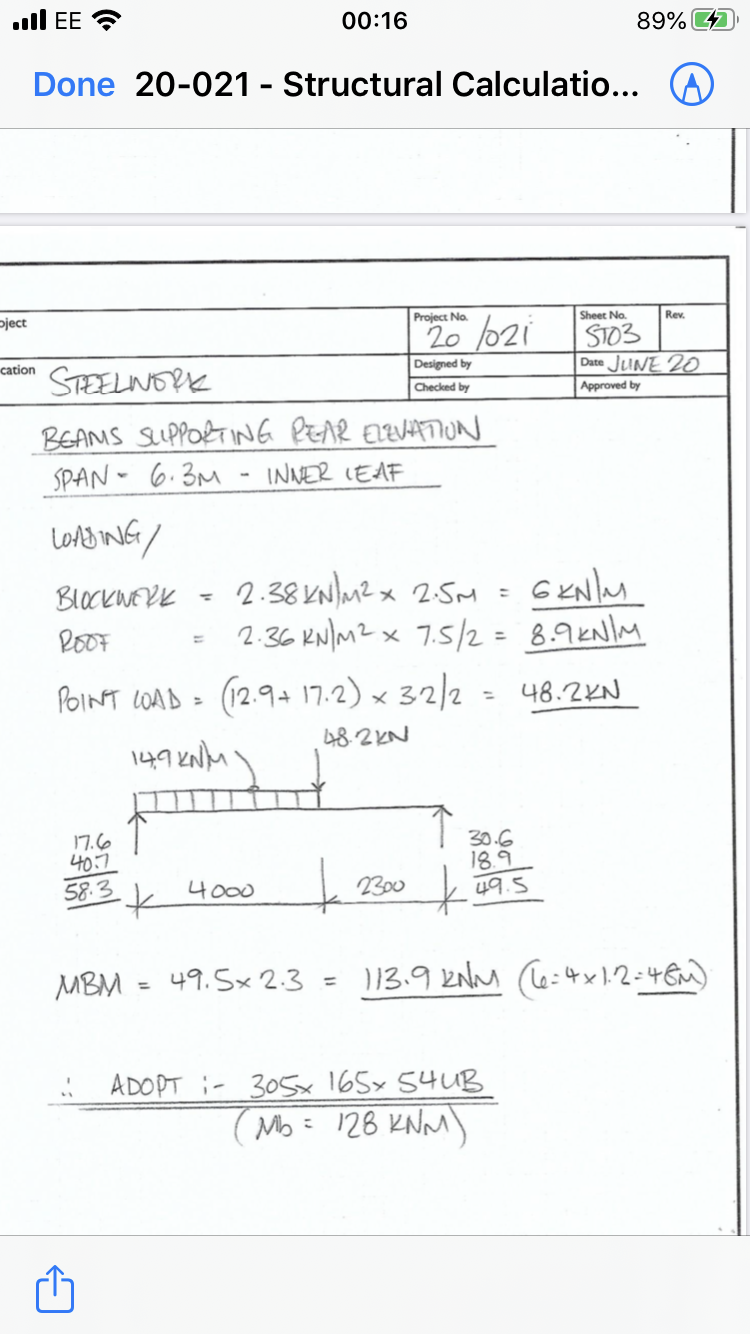 EE 00:16 89%
Done 20-021 - Structural Calculatio...
oject
Project No. 20/021
Sheet No. ST03
Rev.
cation STEELWORK
Designed by
Date JUNE 20
Checked by
Approved by
BEAMS SUPPORTING REAR ELEVATION
SPAN - 6.3M - INNER LEAF
LOADING/
BLOCKWORK = 2.38 KN/M² x 2.5M = 6 KN/M
ROOF = 2.36 KN/M² x 7.5/2 = 8.9 KN/M
POINT LOAD = (12.9 + 17.2) x 3.2/2 = 48.2KN
48.2KN
14.9 KN/M
17.6
40.7
58.3
4000
2300
30.6
18.9
49.5
MBM = 49.5 x 2.3 = 113.9 KNM (le = 4 x 1.2 = 4.8M)
∴ ADOPT :- 305 x 165 x 54 UB
(Mb = 128 KNM)